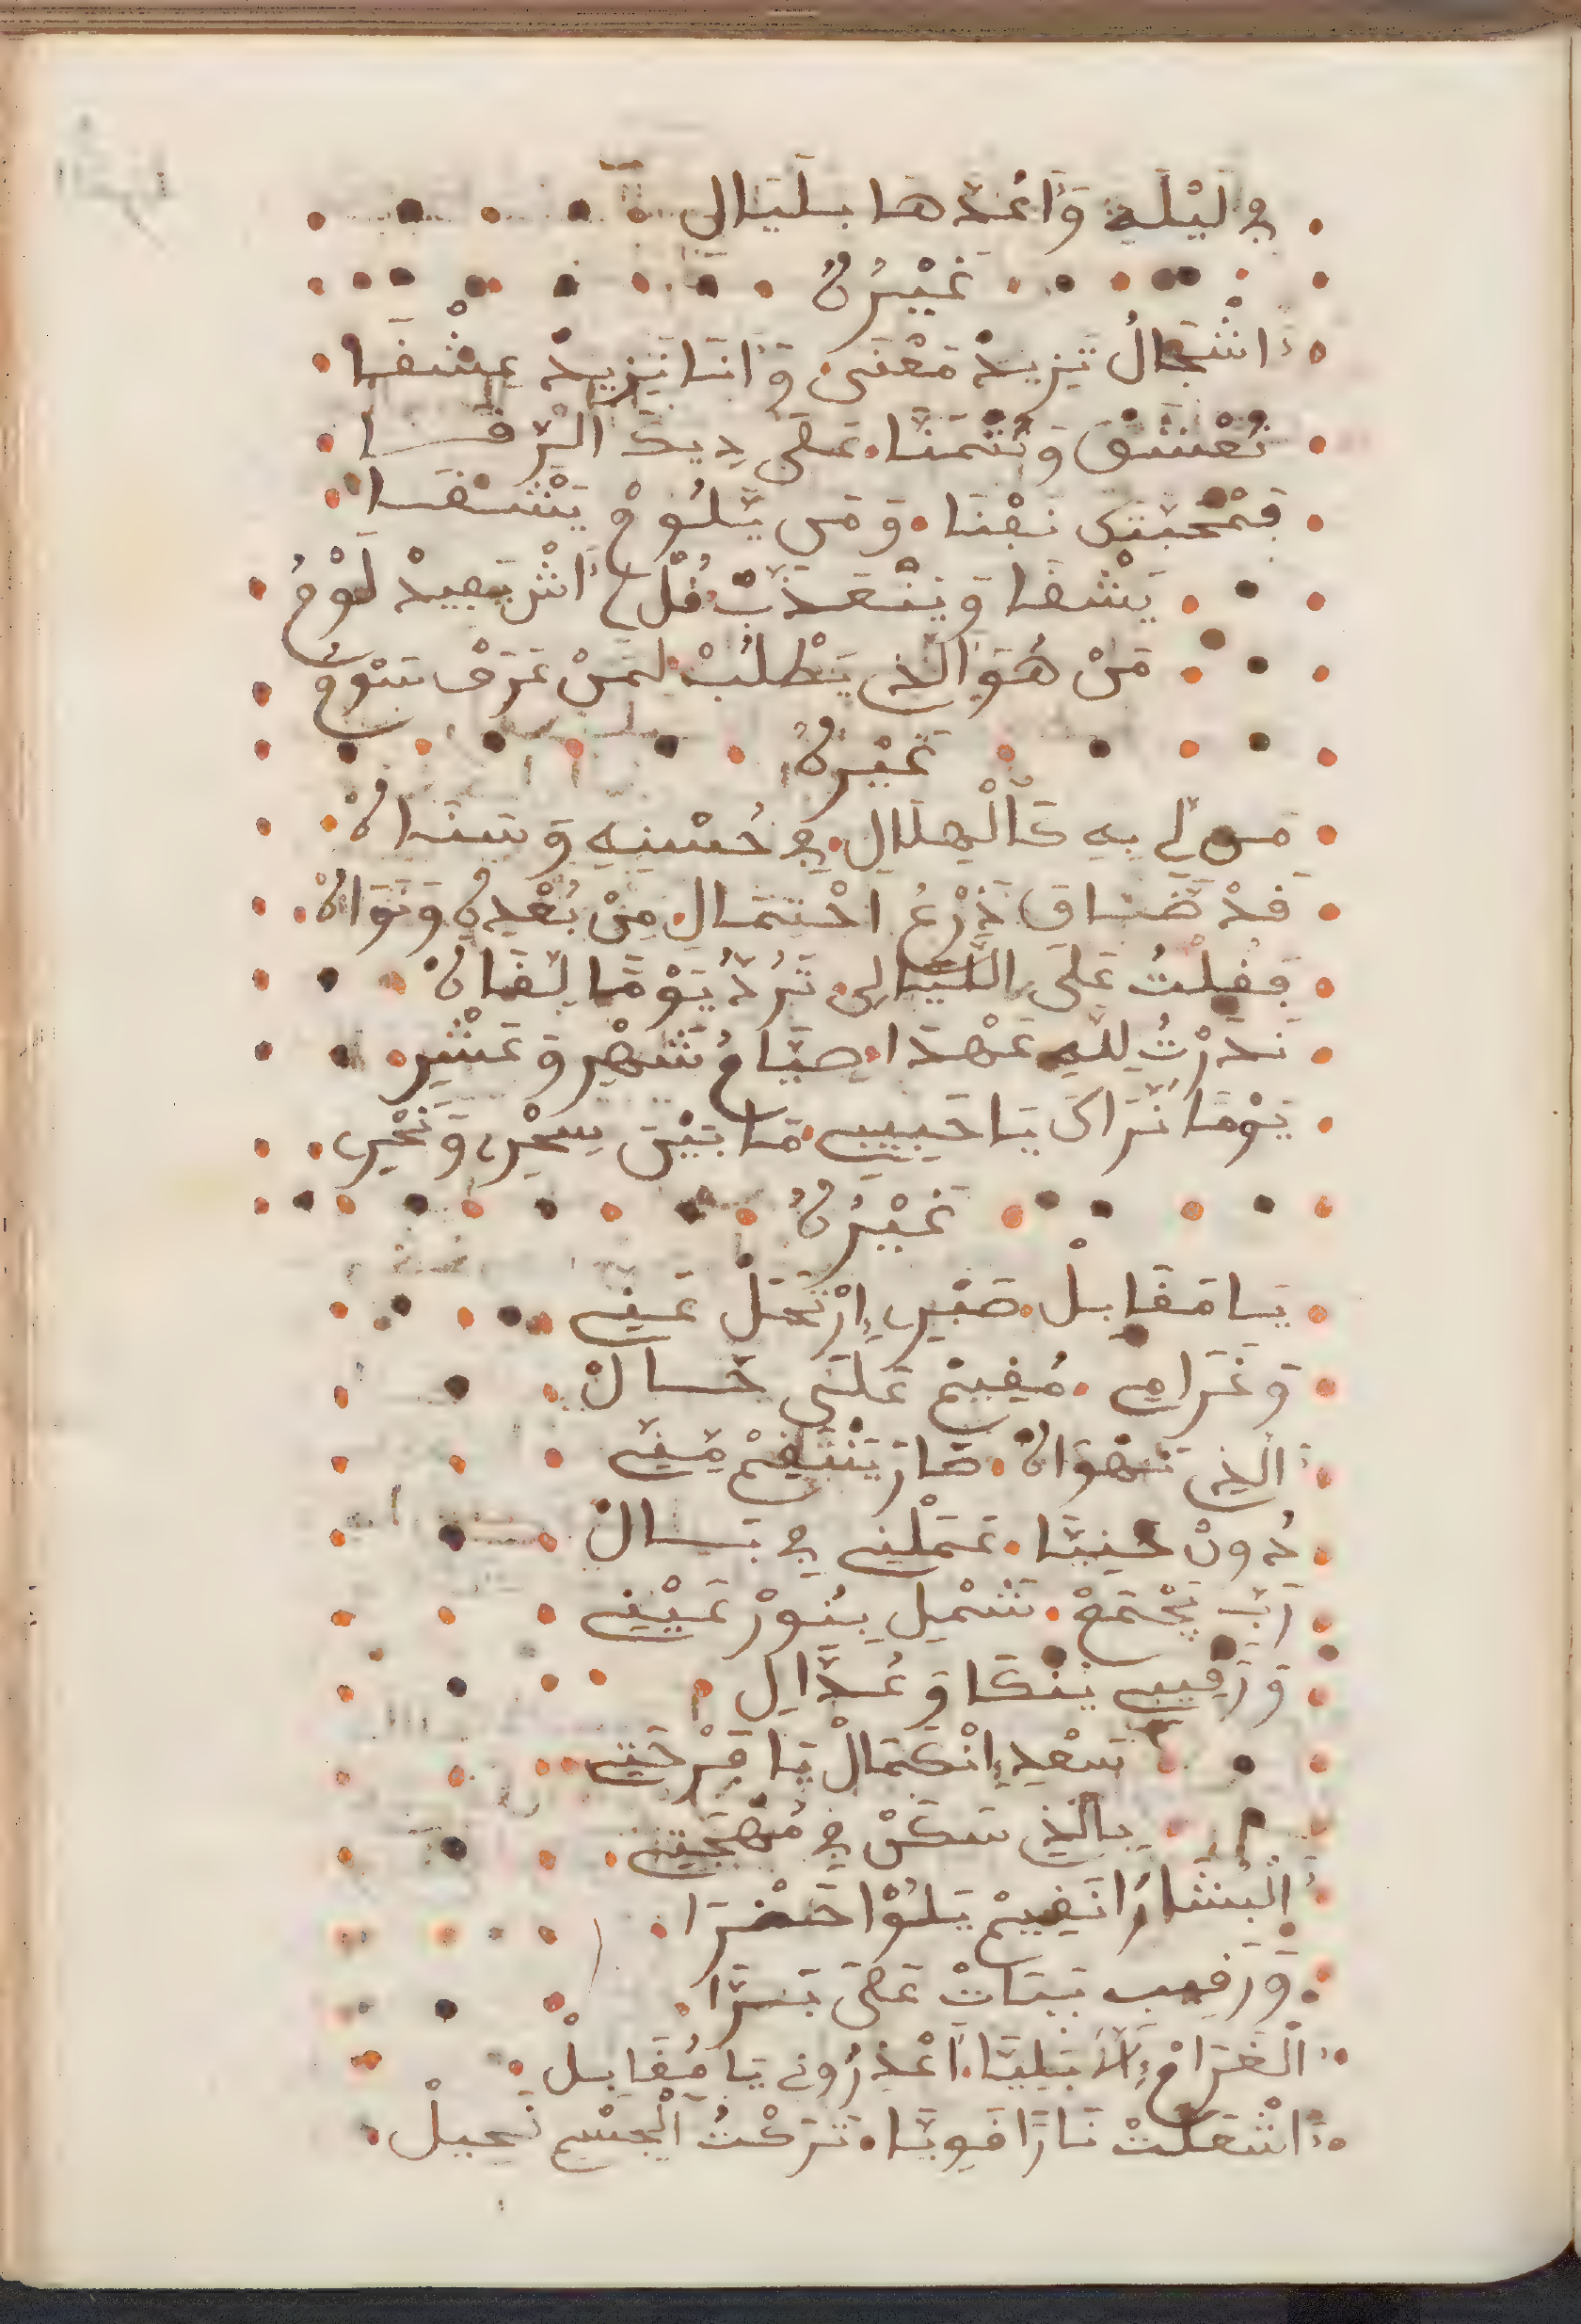 في لَيْلَةٍ وَأَعُدّهَا بِلَيَالِي
غَيْرُهُ
اشْتِعَالُ تَزِيدْ مَعْنَى وَأَنَا نَزِيدْ عِشْقَا
نُعْشَقْ وَنُتْمَنَّا عَلَى دِيكَ الْرّقَا
فَمْحَبّتَك نَفْنَا وَمَن يَّلُومْ يَشْقَا
يَشْقَا وَيَتْعَذّبْ قُلْ اشْ يفِيدْ لَوْمُ
مَنْ هُوَ الَّذِي يَطْلُبْ لمَنْ عَرَفْ سَوْمُ
غَيْرُهُ
مَن لِّي بِهِ كَالْهِلَالِ فِي حُسْنِهِ وَسَنَاهْ
قَدْ ضَاقَ ذَرْعُ احْتِمَالِ مِنْ بُعْدِهِ وَنَوَاهْ
فَقُلْتُ عَلَى اللَّيَالِي تَرُدُّ يَوْمًا لِقَاهْ
نَدَرْتُ لِلَّهِ عَهْدَا صِيَّامُ شَهْرٍ وَعَشْرِ
يَوْمَا نّرَاكَ يَا حَبِيبِي مَا بَيْنَ سِحْرِي وَنَحْرِي
غَيْرُهُ
يَا مَقَابِلْ صَبْرِي إِرْتَحَلْ عَنِّي
وَغَرَامِي مُقِيمْ عَلَى حَالْ
الَّذِي نَهْوَاهْ صَارَ يَنْتَقِمْ مِّنِّي
دُونْ جْنِيّا عَمَلْنِي فِي بَالْ
رَبّ يَجْمَعْ شَمْلِي بِنُورْ عَيْنِي
وَرَقِيبِي يَنْكَا وَعُذَّالِي
سَعْدِي إِنْكَمَلْ يَا فَرْحَتِي
بِالَّذِي سَكَنْ فِي مُهْجَتِي
الْبُشَارَا نَقِيمْ يَلُوْا حَضْرَا
وَرَقِيبِي بَبَاتْ عَلَى بَرَّا
الْغَرَامْ إِلَّا بَلِيَّا اعْذِرُونِي يَا مُقَابِلْ
اشْتَعَلَتْ نَارًا قَوِيَّا تَرَكْتُ الْجَسْمِ نَحِيلْ